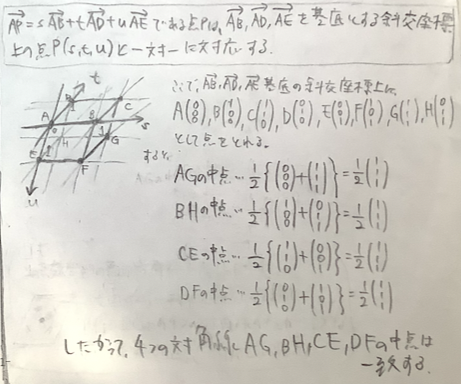 AP→=sAB→+tAD→+uAE→ である点Pは, AB→, AD→, AE→を基底とする斜交座標
上の点P(s,t,u)と一対一に対応する.
ここで, AB→, AD→, AE→基底の斜交座標上に,
A(0 0 0), B(1 0 0), C(1 1 0), D(0 1 0), E(0 0 1), F(1 0 1), G(1 1 1), H(0 1 1)
として点をとれる.
すると,
t
A
B
C
s
D
E
F
G
H
u
AGの中点… 1/2{(0 0 0)+(1 1 1)}=1/2(1 1 1)
BHの中点… 1/2{(1 0 0)+(0 1 1)}=1/2(1 1 1)
CEの中点… 1/2{(1 1 0)+(0 0 1)}=1/2(1 1 1)
DFの中点… 1/2{(0 1 0)+(1 0 1)}=1/2(1 1 1)
したがって, 4つの対角線 AG, BH, CE, DFの中点は
一致する.